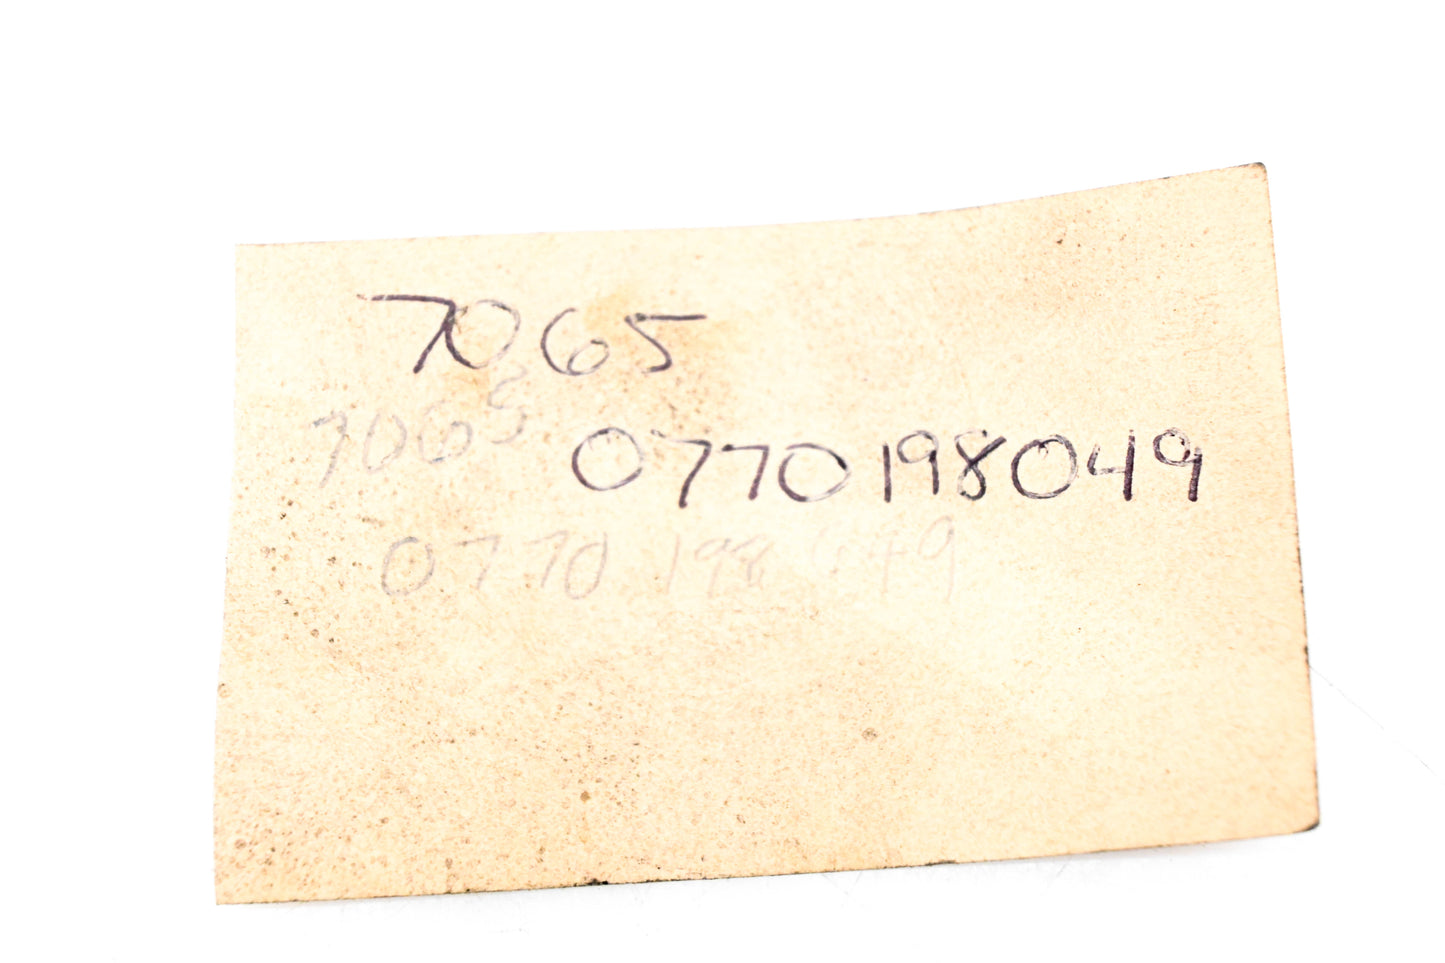 7065
7065
0770198049
0770198049